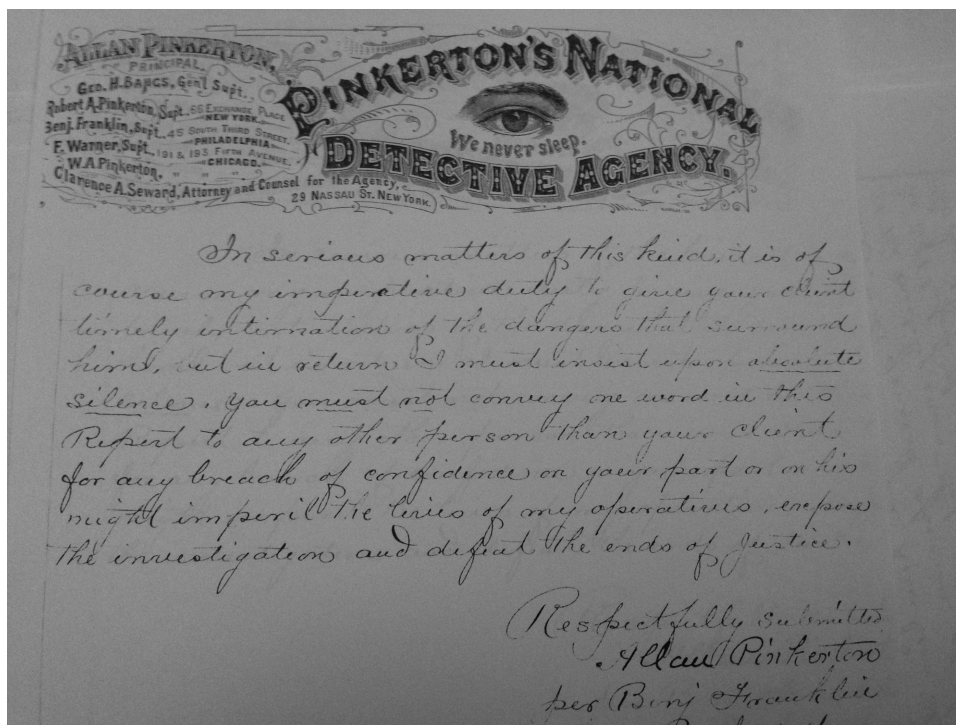 ALLAN PINKERTON,
PRINCIPAL.
GEO. H. BANGS, Gen'l Supt.
Robert A. Pinkerton, Supt., 66 EXCHANGE PLACE
NEW YORK.
Benj. Franklin, Supt., 45 SOUTH THIRD STREET,
PHILADELPHIA.
F. Warner, Supt., 191 & 193 FIFTH AVENUE,
W. A. Pinkerton, " " CHICAGO.
Clarence A. Seward, Attorney and Counsel for the Agency,
29 NASSAU ST. NEW YORK.
PINKERTON'S NATIONAL
We never sleep.
DETECTIVE AGENCY.
In serious matters of this kind, it is of
course my imperative duty to give your client
timely intimation of the dangers that surround
him, but in return I must insist upon absolute
silence. You must not convey one word in this
Report to any other person than your client
for any breach of confidence on your part or on his
might imperil the lives of my operatives, expose
the investigation and defeat the ends of Justice.
Respectfully submitted
Allan Pinkerton
per Benj Franklin